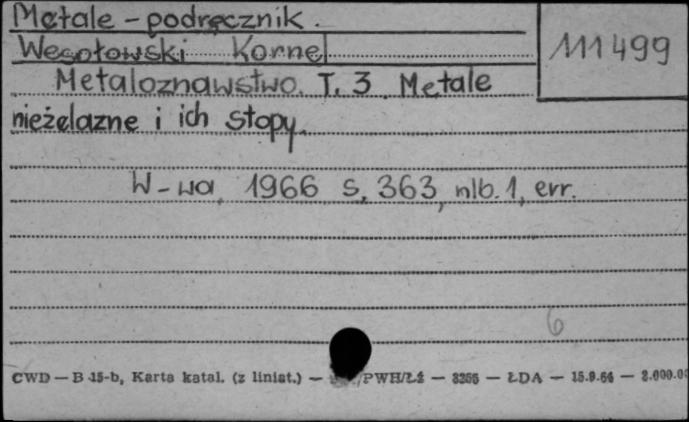 Metale - podręcznik.
111499
Wesołowski Kornel
Metaloznawstwo. T. 3 Metale
nieżelazne i ich stopy.
W-wa, 1966 s. 363, nlb. 1, err.
6
CWD — B 15-b, Karta katal. (z liniat.) — /PWH/Łź — 3256 — ŁDA — 15.9.64 — 2.000.0